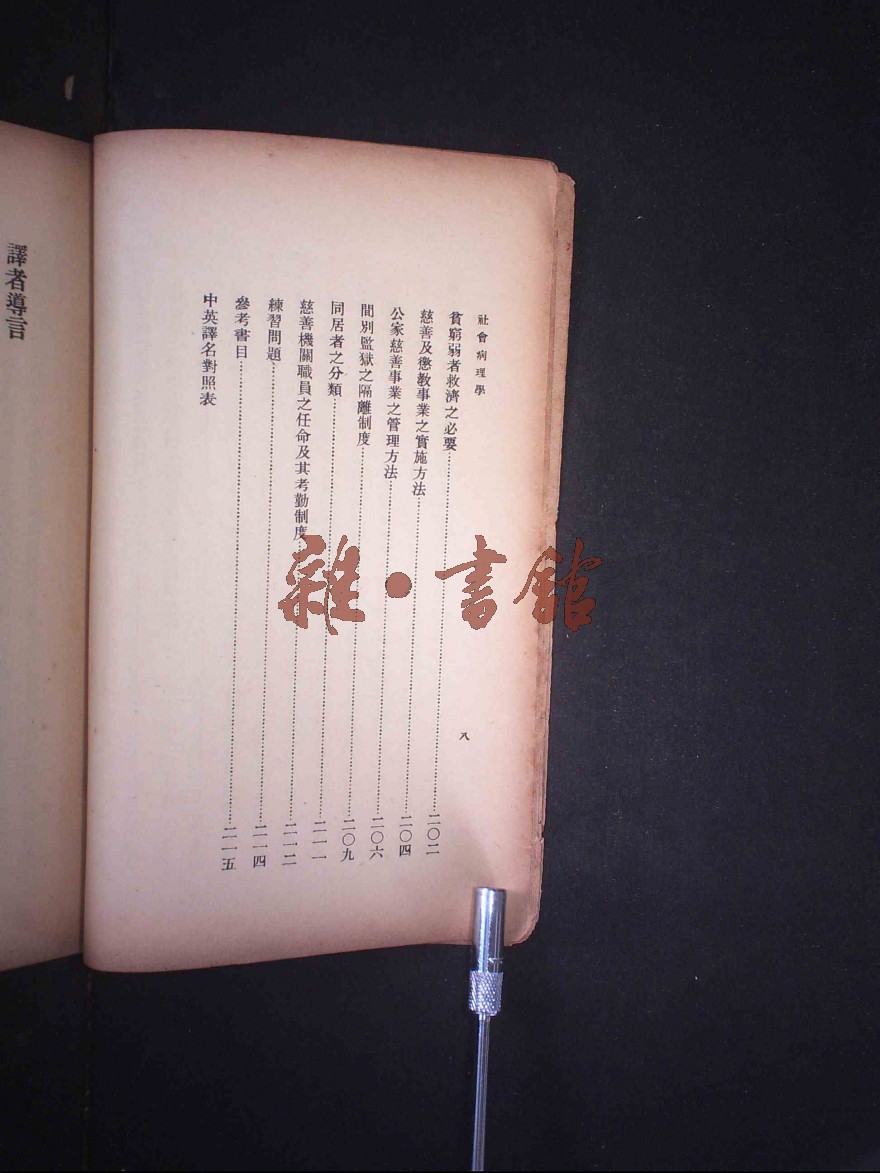 社會病理學
八
貧窮弱者救濟之必要……二〇二
慈善及懲教事業之實施方法……二〇四
公家慈善事業之管理方法……二〇六
間別監獄之隔離制度……二〇九
同居者之分類……二一一
慈善機關職員之任命及其考勤制度……二一二
練習問題……二一四
參考書目……二一五
中英譯名對照表
譯者導言
雜·書館